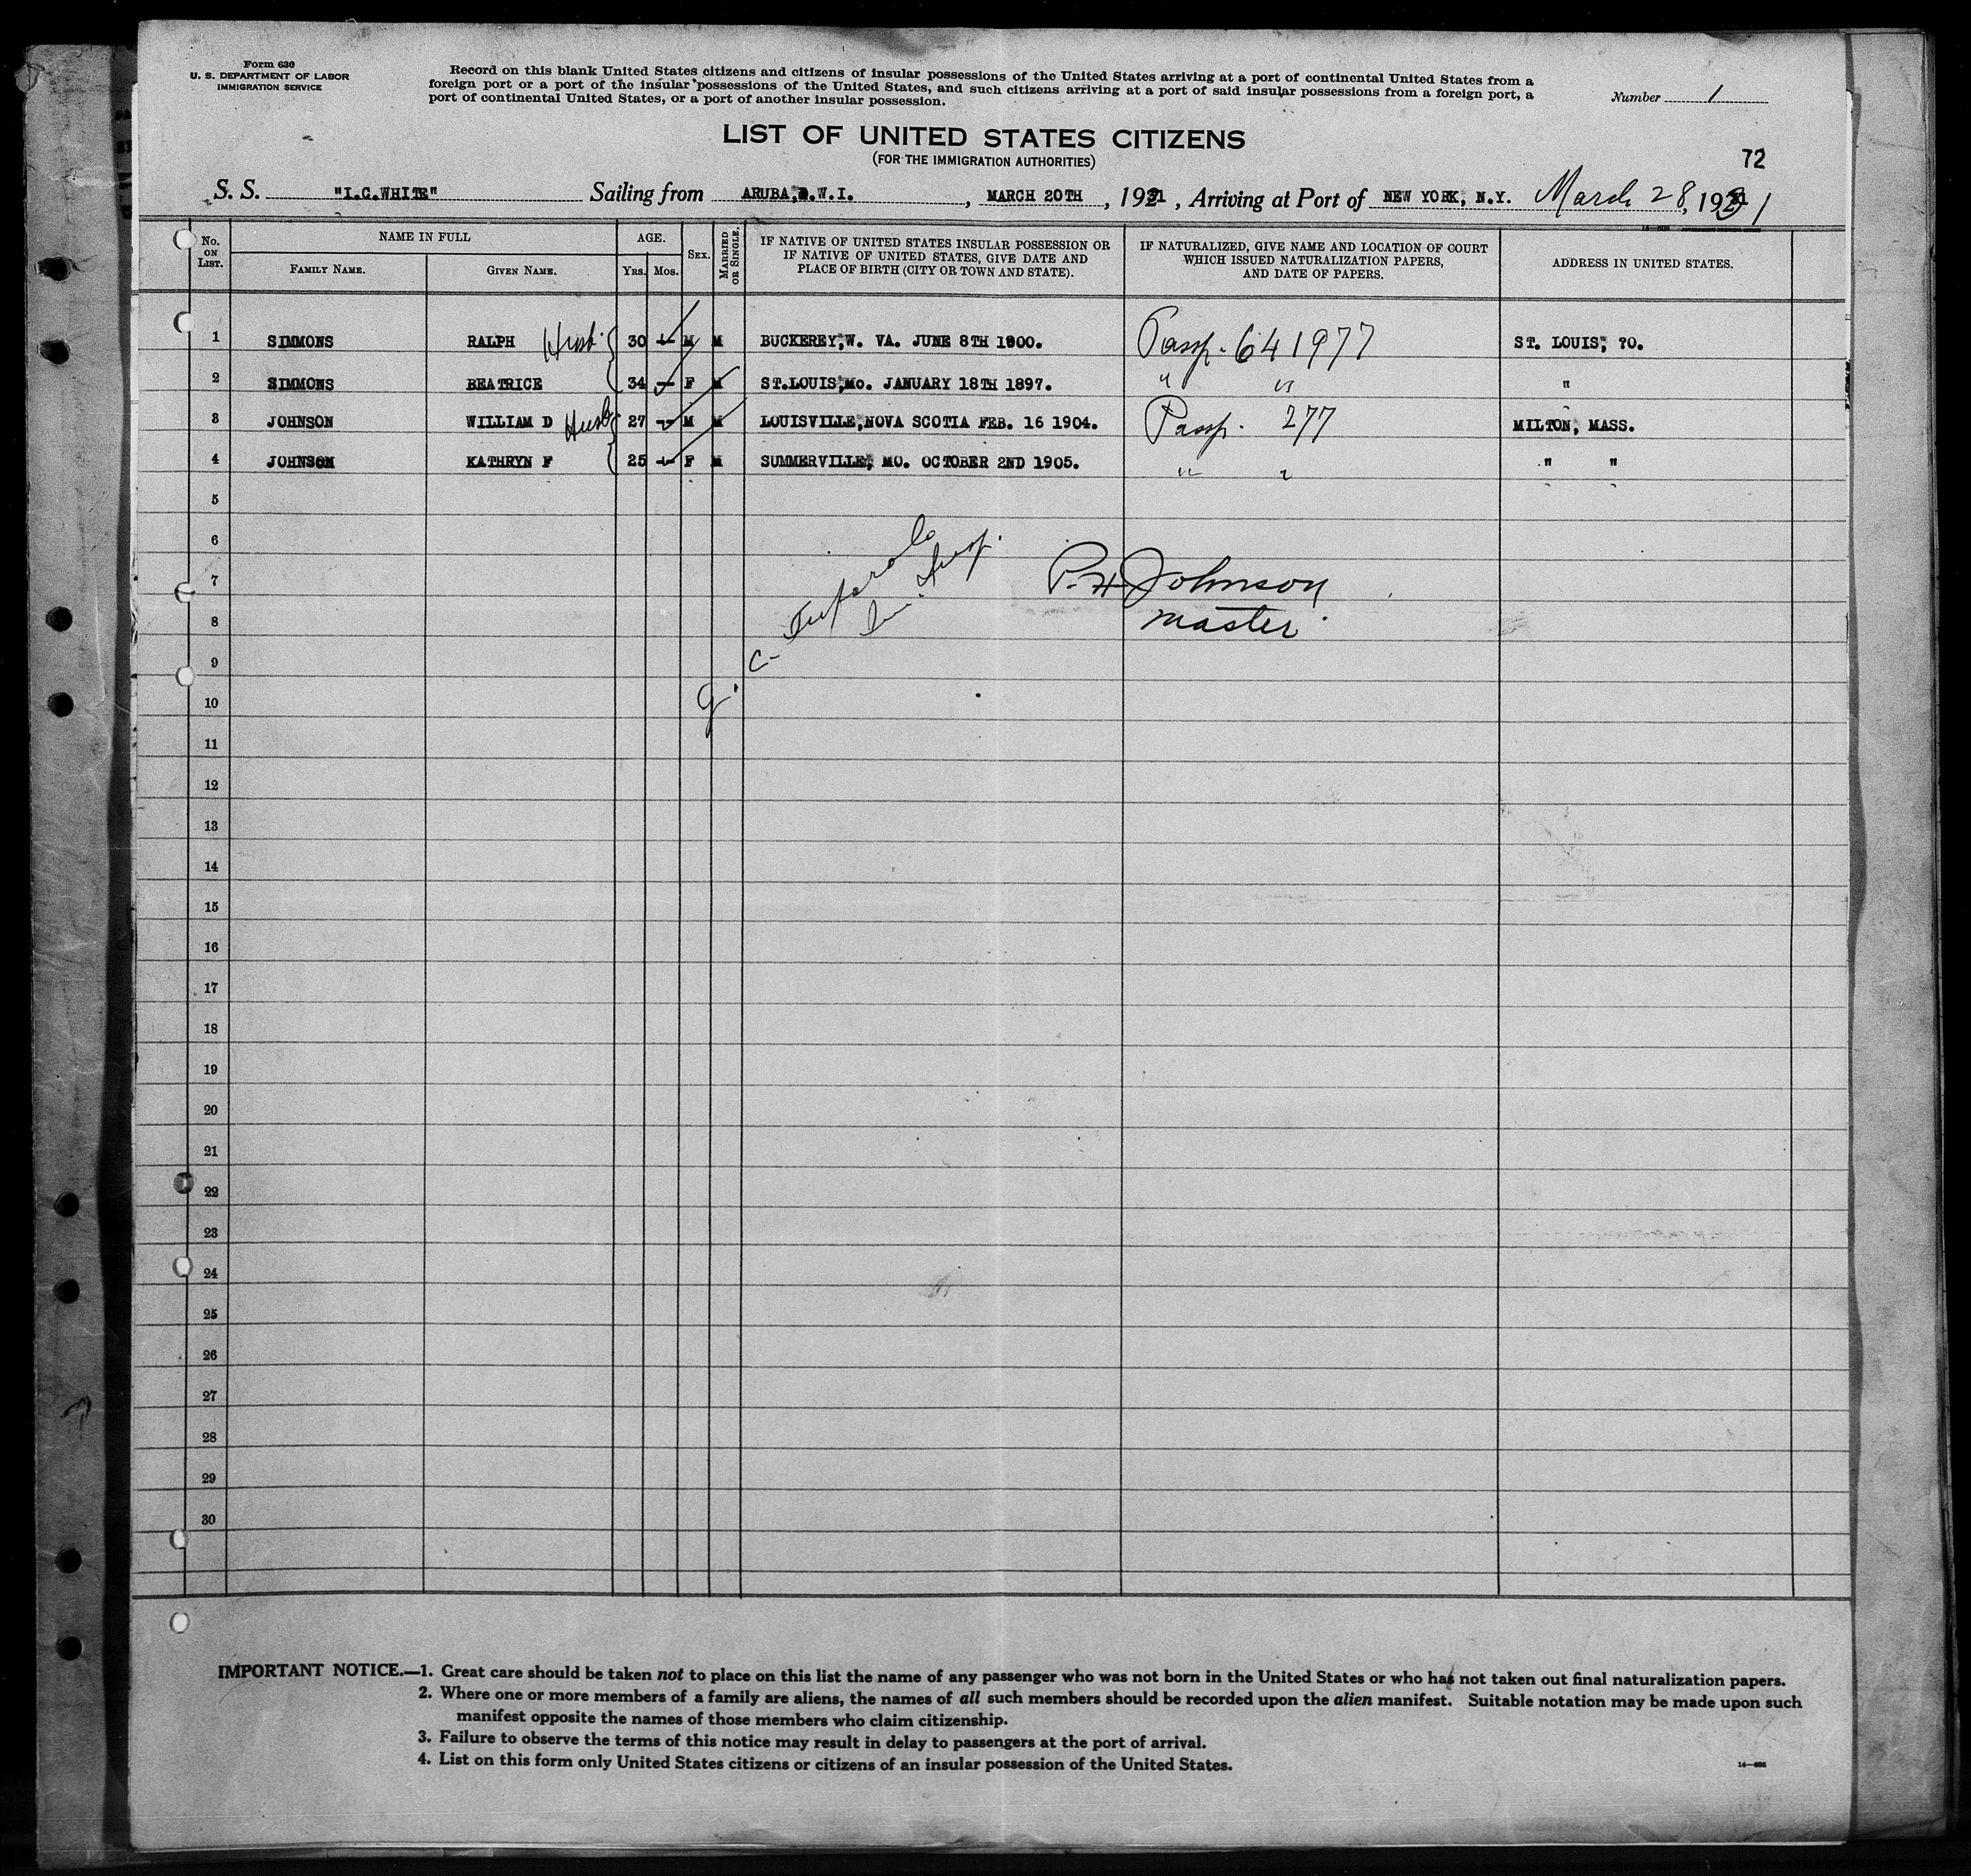 Form 630
U. S. DEPARTMENT OF LABOR
IMMIGRATION SERVICE
Record on this blank United States citizens and citizens of insular possessions of the United States arriving at a port of continental United States from a
foreign port or a port of the insular possessions of the United States, and such citizens arriving at a port of said insular possessions from a foreign port, a
port of continental United States, or a port of another insular possession.
Number 1
LIST OF UNITED STATES CITIZENS
(FOR THE IMMIGRATION AUTHORITIES)
72
S. S. "I.C.WHITE" Sailing from ARUBA, D.W.I. , MARCH 20TH , 1931 , Arriving at Port of NEW YORK, N.Y. March 28, 1931
No. ON LIST. NAME IN FULL AGE. SEX. MARRIED OR SINGLE. IF NATIVE OF UNITED STATES INSULAR POSSESSION OR IF NATIVE OF UNITED STATES, GIVE DATE AND PLACE OF BIRTH (CITY OR TOWN AND STATE). IF NATURALIZED, GIVE NAME AND LOCATION OF COURT WHICH ISSUED NATURALIZATION PAPERS, AND DATE OF PAPERS. ADDRESS IN UNITED STATES.
FAMILY NAME. GIVEN NAME. YRS. MOS.
1 SIMMONS RALPH Husb. 30 M M BUCKEREY, W. VA. JUNE 8TH 1900. Passp. 641977 ST. LOUIS, ?O.
2 SIMMONS BEATRICE 34 - F M ST.LOUIS, MO. JANUARY 18TH 1897. " " "
3 JOHNSON WILLIAM D Husb 27 - M M LOUISVILLE, NOVA SCOTIA FEB. 16 1904. Passp. 277 MILTON, MASS.
4 JOHNSON KATHRYN F 25 - F M SUMMERVILLE, MO. OCTOBER 2ND 1905. " " " "
5
6
7 P. H Johnson
8 master
9
10
11
12
13
14
15
16
17
18
19
20
21
22
23
24
25
26
27
28
29
30
IMPORTANT NOTICE.—1. Great care should be taken not to place on this list the name of any passenger who was not born in the United States or who has not taken out final naturalization papers.
2. Where one or more members of a family are aliens, the names of all such members should be recorded upon the alien manifest. Suitable notation may be made upon such
manifest opposite the names of those members who claim citizenship.
3. Failure to observe the terms of this notice may result in delay to passengers at the port of arrival.
4. List on this form only United States citizens or citizens of an insular possession of the United States.